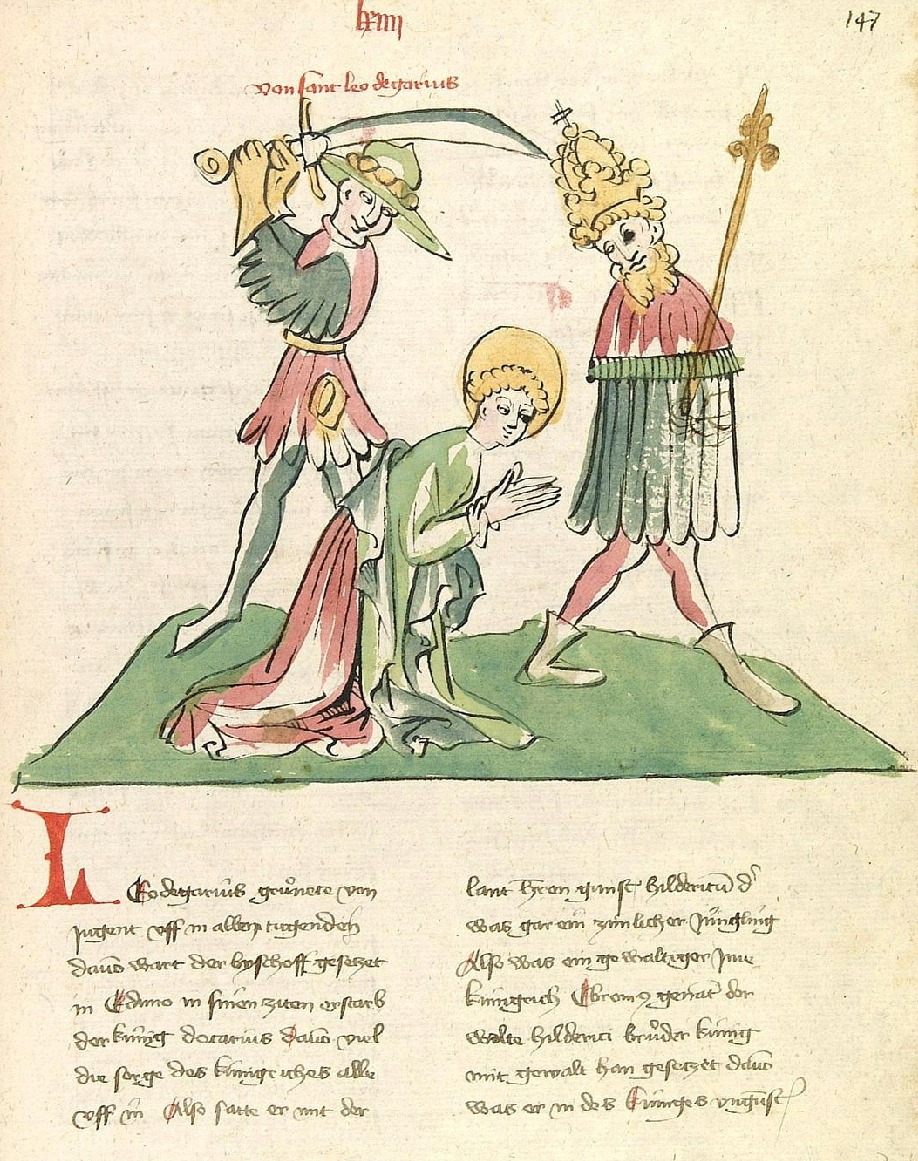 lxiiij
147
von sant leodegarius
LEodegarius grůnete von
jugent vff in allen tugenden
dauon wart der byschoff gesetzet
in Eduno in sinen ziten erstarb
der kúnig dotarius dauon viel
die sorge des kúnigriches alle
vff in Also satte er mit der
lant herren gunst hildericum d'
was gar ein zimlicher Júngling
Also was ein gewaltiger Jnne
kúnigrich Ebroin9 genāt der
wolte hilderici brůder kúnig
mit gewalt han gesetzet dauō
was er in des kúniges vngunst